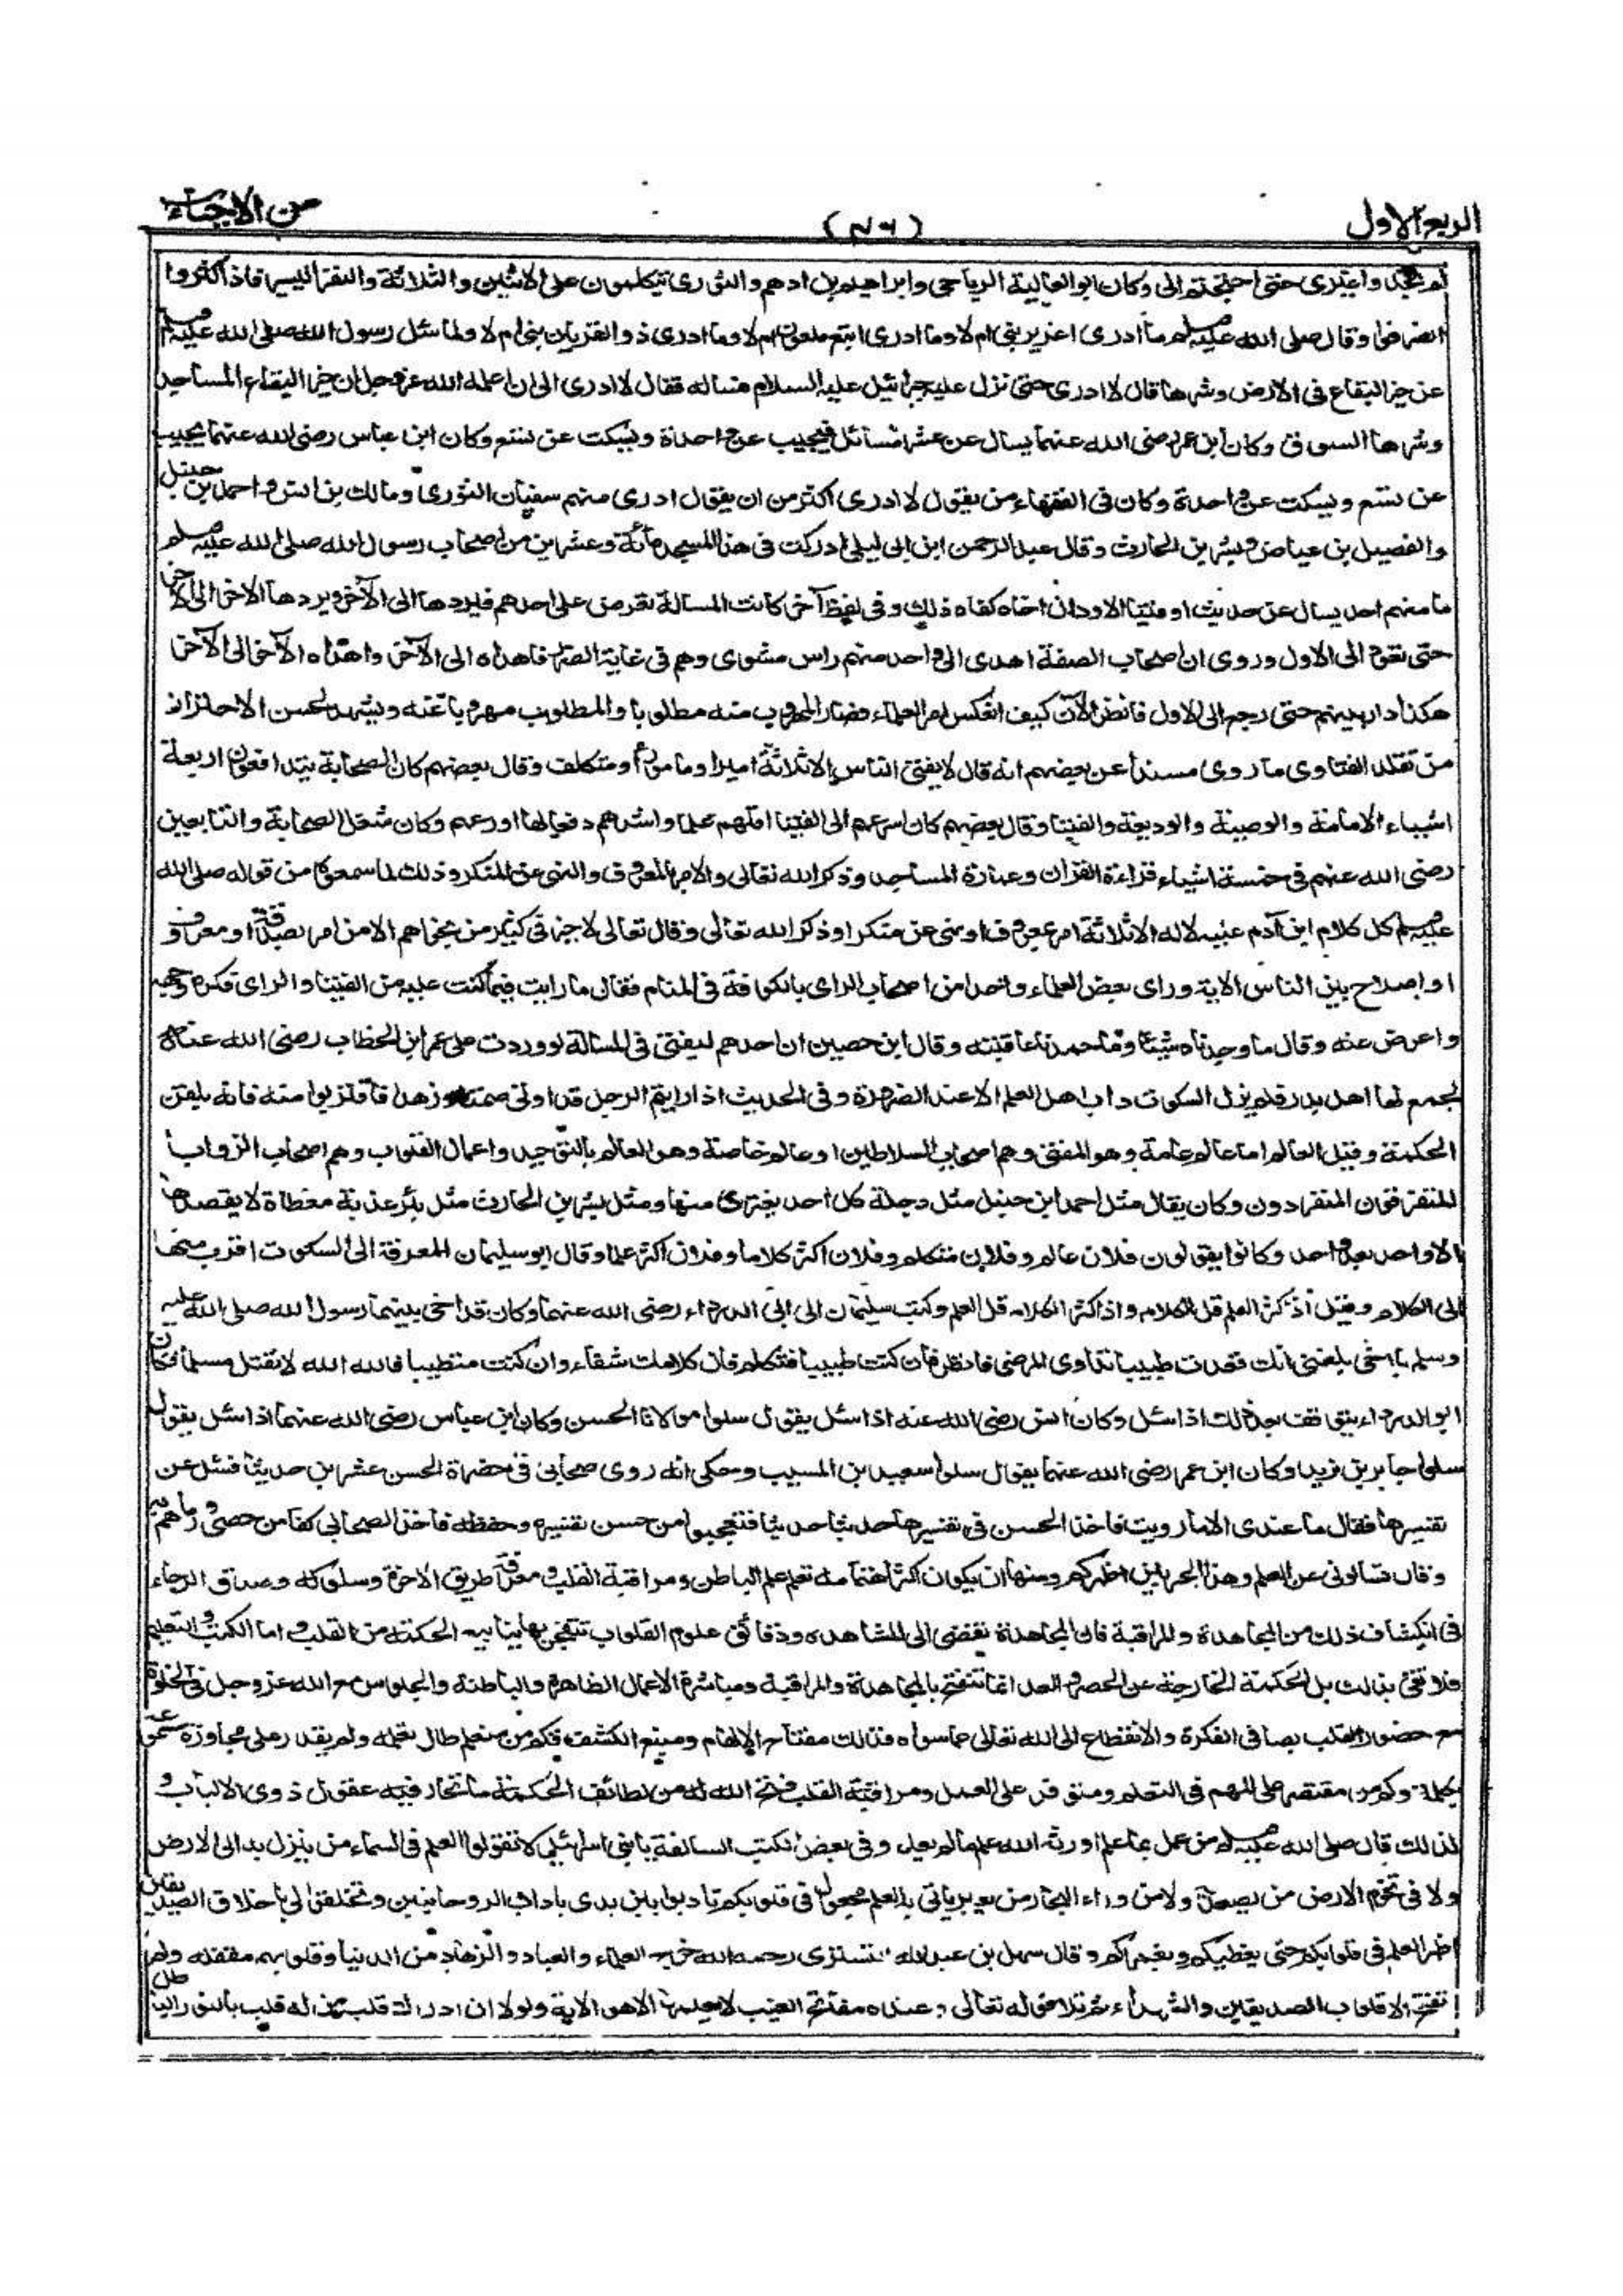 الربع الاول
من الاحياء
لم تجدوا غيري حتى احتجتم الى وكان ابو العالية الرياحي وابراهيم بن ادهم والثوري يتكلمون على الاثنين والثلاثة والنفر اليسير فاذا كثروا
انصرفوا وقال صلى الله عليه وسلم ما ادرى اعزير نبي ام لا وما ادرى اتبع ملعون ام لا وما ادرى ذو القرنين نبي ام لا ولما سئل رسول الله صلى الله عليه وسلم
عن خير البقاع في الارض وشرها قال لا ادرى حتى نزل عليه جبرائيل عليه السلام فساله فقال لا ادرى الى ان اعلمه الله عز وجل ان خير البقاع المساجد
وشرها السوق وكان ابن عمر رضى الله عنهما يسال عن عشر مسائل فيجيب عن واحدة ويسكت عن تسع وكان ابن عباس رضى الله عنهما يجيب
عن تسع ويسكت عن واحدة وكان في الفقهاء من يقول لا ادرى اكثر من ان يقول ادرى منهم سفيان الثورى ومالك بن انس واحمد بن حنبل
والفضيل بن عياض وبشر بن الحارث وقال عبد الرحمن ابن ابى ليلى ادركت في هذا المسجد مائة وعشرين من اصحاب رسول الله صلى الله عليه وسلم
ما منهم احد يسال عن حديث او فتيا الا ود ان اخاه كفاه ذلك وفى لفظ آخر كانت المسالة تعرض على احدهم فيردها الى الآخر ويردها الاخر الى الآخر
حتى تعود الى الاول وروى ان اصحاب الصفة اهدى الى واحد منهم راس مشوى وهم في غاية الضر فاهداه الى الآخر واهداه الآخر الى الآخر
هكذا دار بينهم حتى رجع الى الاول فانظر الآن كيف انعكس امر العلماء فصار المهروب منه مطلوبا والمطلوب مهروبا عنه ويشهد لحسن الاحتراز
من تقلد الفتاوى ما روى مسندا عن بعضهم انه قال لا يفتى الناس الا ثلاثة امير او مامور او متكلف وقال بعضهم كان الصحابة يتدافعون اربعة
اشياء الامامة والوصية والوديعة والفتيا وقال بعضهم كان اسرعهم الى الفتيا اقلهم علما واشدهم دفعا لها اورعهم وكان شغل الصحابة والتابعين
رضى الله عنهم في خمسة اشياء قراءة القران وعمارة المساجد وذكر الله تعالى والامر بالمعروف والنهى عن المنكر وذلك لما سمعوا من قوله صلى الله
عليه وسلم كل كلام ابن آدم عليه لا له الا ثلاثة امر بمعروف او نهى عن منكر او ذكر الله تعالى وقال تعالى لا خير في كثير من نجواهم الا من امر بصدقة او معروف
او اصلاح بين الناس الاية وراى بعض العلماء واحدا من اصحاب الراى بالكوفة في المنام فقال ما رايت فيما كنت عليه من الفتيا والراى فكره وجهه
واعرض عنه وقال ما وجدناه شيئا وما حمدنا عاقبته وقال ابن حصين ان احدهم ليفتى في المسالة لو وردت على عمر ابن الخطاب رضى الله عنه
لجمع لها اهل بدر فلم يزل السكوت داب اهل العلم الا عند الضرورة وفى الحديث اذا رايتم الرجل قد اوتى صمتا وزهدا فاقتربوا منه فانه يلقن
الحكمة وقيل العالم اما عالم عامة وهو المفتى وهم اصحاب السلاطين او عالم خاصة وهو العالم بالتوحيد واعمال القلوب وهم اصحاب الزوايا
المتفرقون المنفردون وكان يقال مثل احمد ابن حنبل مثل دجلة كل احد يغترف منها ومثل بشر بن الحارث مثل بئر عذبة مغطاة لا يقصدها
الا واحد بعد واحد وكانوا يقولون فلان عالم وفلان متكلم وفلان اكثر كلاما وفلان اكثر علما وقال ابو سليمان المعرفة الى السكوت اقرب منها
الى الكلام وقيل اذا كثر العلم قل الكلام واذا كثر الكلام قل العلم وكتب سلمان الى ابى الدرداء رضى الله عنهما وكان قد اخى بينهما رسول الله صلى الله عليه
وسلم يا اخى بلغنى انك قعدت طبيبا تداوى المرضى فانظر فان كنت طبيبا فتكلم فان كلامك شفاء وان كنت متطببا فالله الله لا تقتل مسلما فكان
ابو الدرداء يتوقف بعد ذلك اذا سئل وكان انس رضى الله عنه اذا سئل يقول سلوا مولانا الحسن وكان ابن عباس رضى الله عنهما اذا سئل يقول
سلوا جابر بن زيد وكان ابن عمر رضى الله عنهما يقول سلوا سعيد بن المسيب وحكى انه روى صحابى في حضرة الحسن عشرين حديثا فسئل عن
تفسيرها فقال ما عندى الا ما رويت فاخذ الحسن في تفسيرها حديثا حديثا فتعجبوا من حسن تفسيره وحفظه فاخذ الصحابى كفا من حصى ورماهم به
وقال تسالونى عن العلم وهذا الحبر بين اظهركم ومنها ان يكون اكثر اهتمامه بعلم الباطن ومراقبة القلب ومعرفة طريق الاخرة وسلوكه وصدق الرجاء
في انكشاف ذلك من المجاهدة والمراقبة فان المجاهدة تفضى الى المشاهده ودقائق علوم القلوب تتفجر بها ينابيع الحكمة من القلب واما الكتب والتعليم
فلا تفى بذلك بل الحكمة الخارجة عن الحصر والعد انما تنفتح بالمجاهدة والمراقبة ومباشرة الاعمال الظاهرة والباطنة والجلوس مع الله عز وجل في الخلوة
مع حضور القلب بصافى الفكرة والانقطاع الى الله تعالى عما سواه فذلك مفتاح الالهام ومنبع الكشف فكم من متعلم طال تعلمه ولم يقدر على مجاوزة مسموعه
بكلمة وكم من مقتصر على المهم في التعلم ومتوفر على العمل ومراقبة القلب فتح الله له من لطائف الحكمة ما تحار فيه عقول ذوى الالباب و
لذلك قال صلى الله عليه وسلم من عمل بما علم اورثه الله علم ما لم يعلم وفى بعض الكتب السالفة يا بنى اسرائيل لا تقولوا العلم في السماء من ينزل به الى الارض
ولا في تخوم الارض من يصعد به ولا من وراء البحار من يعبر ياتى به العلم مجعول في قلوبكم تادبوا بين يدى باداب الروحانيين وتخلقوا لى باخلاق الصديقين
اظهر العلم في قلوبكم حتى يغطيكم ويغمركم وقال سهل بن عبد الله التسترى رحمه الله خرج العلماء والعباد والزهاد من الدنيا وقلوبهم مقفلة ولم
تفتح الا قلوب الصديقين والشهداء ثم تلا قوله تعالى وعنده مفاتح الغيب لا يعلمها الا هو الاية ولولا ان ادراك قلب من له قلب بالنور الباطن